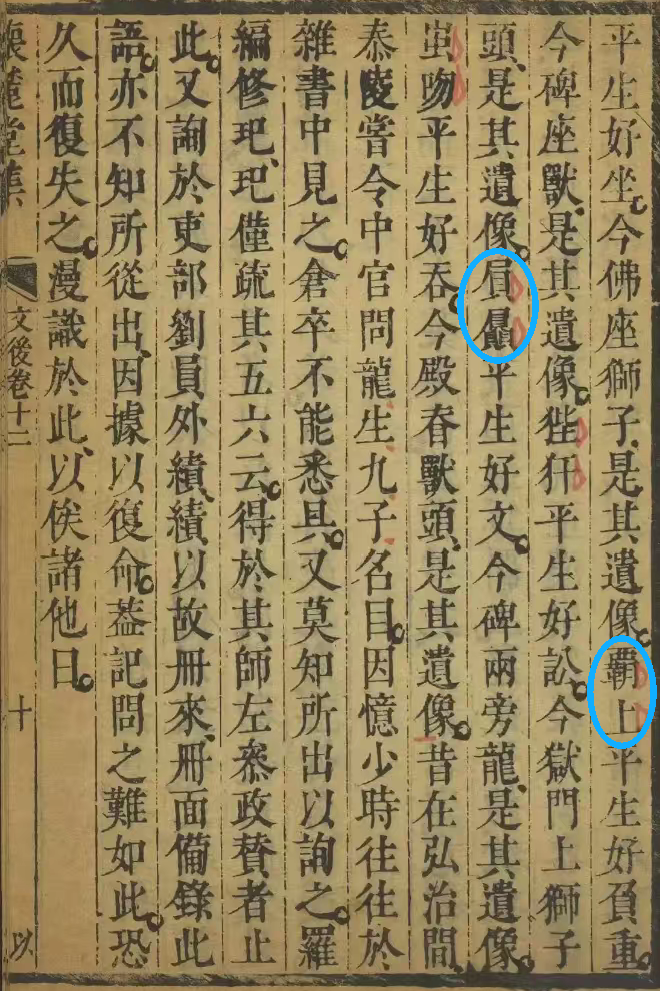 平生好坐。今佛座獅子、是其遺像。覇上平生好負重。
今碑座獸、是其遺像。狴犴平生好訟。今獄門上獅子
頭、是其遺像。屓贔平生好文。今碑兩旁龍、是其遺像。
蚩吻平生好吞。今殿脊獸頭、是其遺像。昔在弘治間
泰陵嘗令中官問龍生九子名目。因憶少時往往於
雜書中見之。倉卒不能悉具。又莫知所出以詢之。羅
編修玘、玘僅疏其五六云。得於其師左叅政賛者止
此。又詢於吏部劉員外績、績以故冊來、冊面備錄此
語。亦不知所從出、因據以復命。葢記問之難如此。恐
久而復失之。漫識於此、以俟諸他日。
懷麓堂集 文後卷十二 十 以